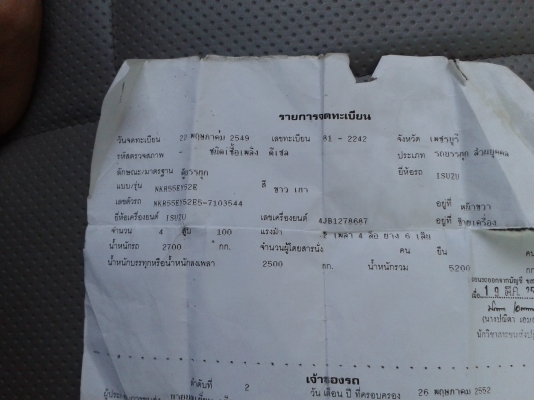 รายการจดทะเบียน
วันจดทะเบียน 22 พฤษภาคม 2549 เลขทะเบียน 81 - 2242 จังหวัด เพชรบุรี
รหัสตรวจสภาพ - ชนิดเชื้อเพลิง ดีเซล ประเภท รถบรรทุก ส่วนบุคคล
ลักษณะ/มาตรฐาน ตู้บรรทุก ยี่ห้อรถ ISUZU
แบบ/รุ่น NKR55EY52E สี ขาว เทา
เลขตัวรถ NKR55EY52E5-7103544 อยู่ที่ หน้าขวา
ยี่ห้อเครื่องยนต์ ISUZU เลขเครื่องยนต์ 4JB1278687 อยู่ที่ ซ้ายเครื่อง
จำนวน 4 สูบ 100 แรงม้า 2 เพลา 4 ล้อ ยาง 6 เส้น
น้ำหนักรถ 2700 กก. จำนวนผู้โดยสารนั่ง คน ยืน คน
น้ำหนักบรรทุกหรือน้ำหนักลงเพลา 2500 กก. น้ำหนักรวม 5200 กก.
เจ้าของรถ
ลำดับที่ 2 วัน เดือน ปี ที่ครอบครอง 26 พฤษภาคม 2552